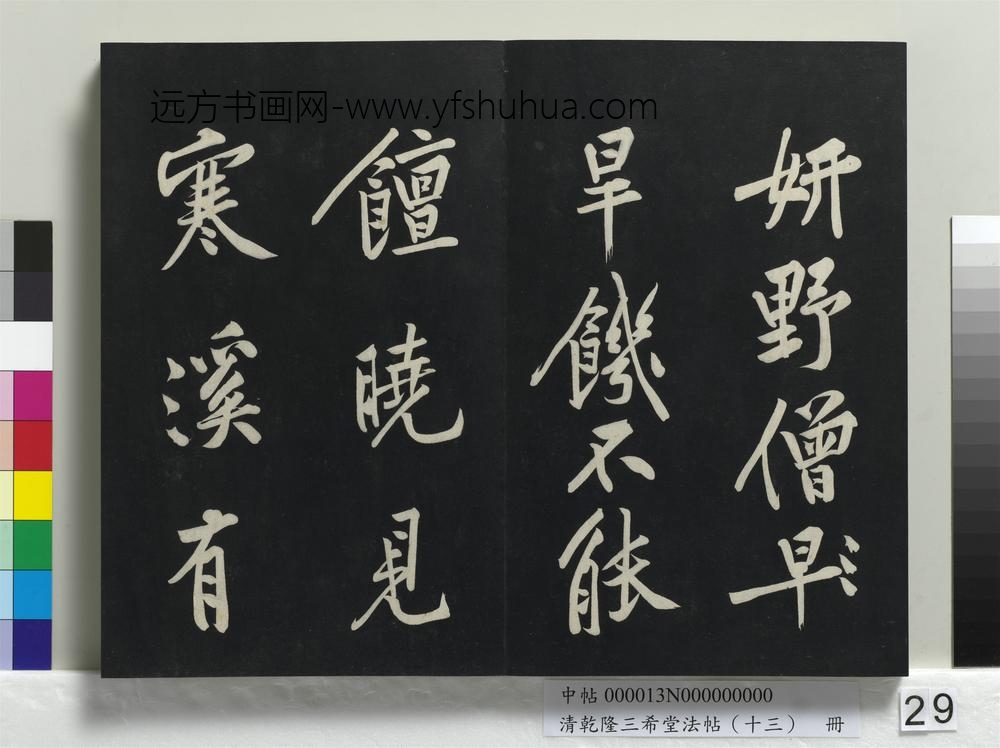 远方书画网-www.yfshuhua.com
妍野僧早
旱饑不能
饘曉見
寒溪有
中帖 000013N000000000
清乾隆三希堂法帖（十三） 冊
29